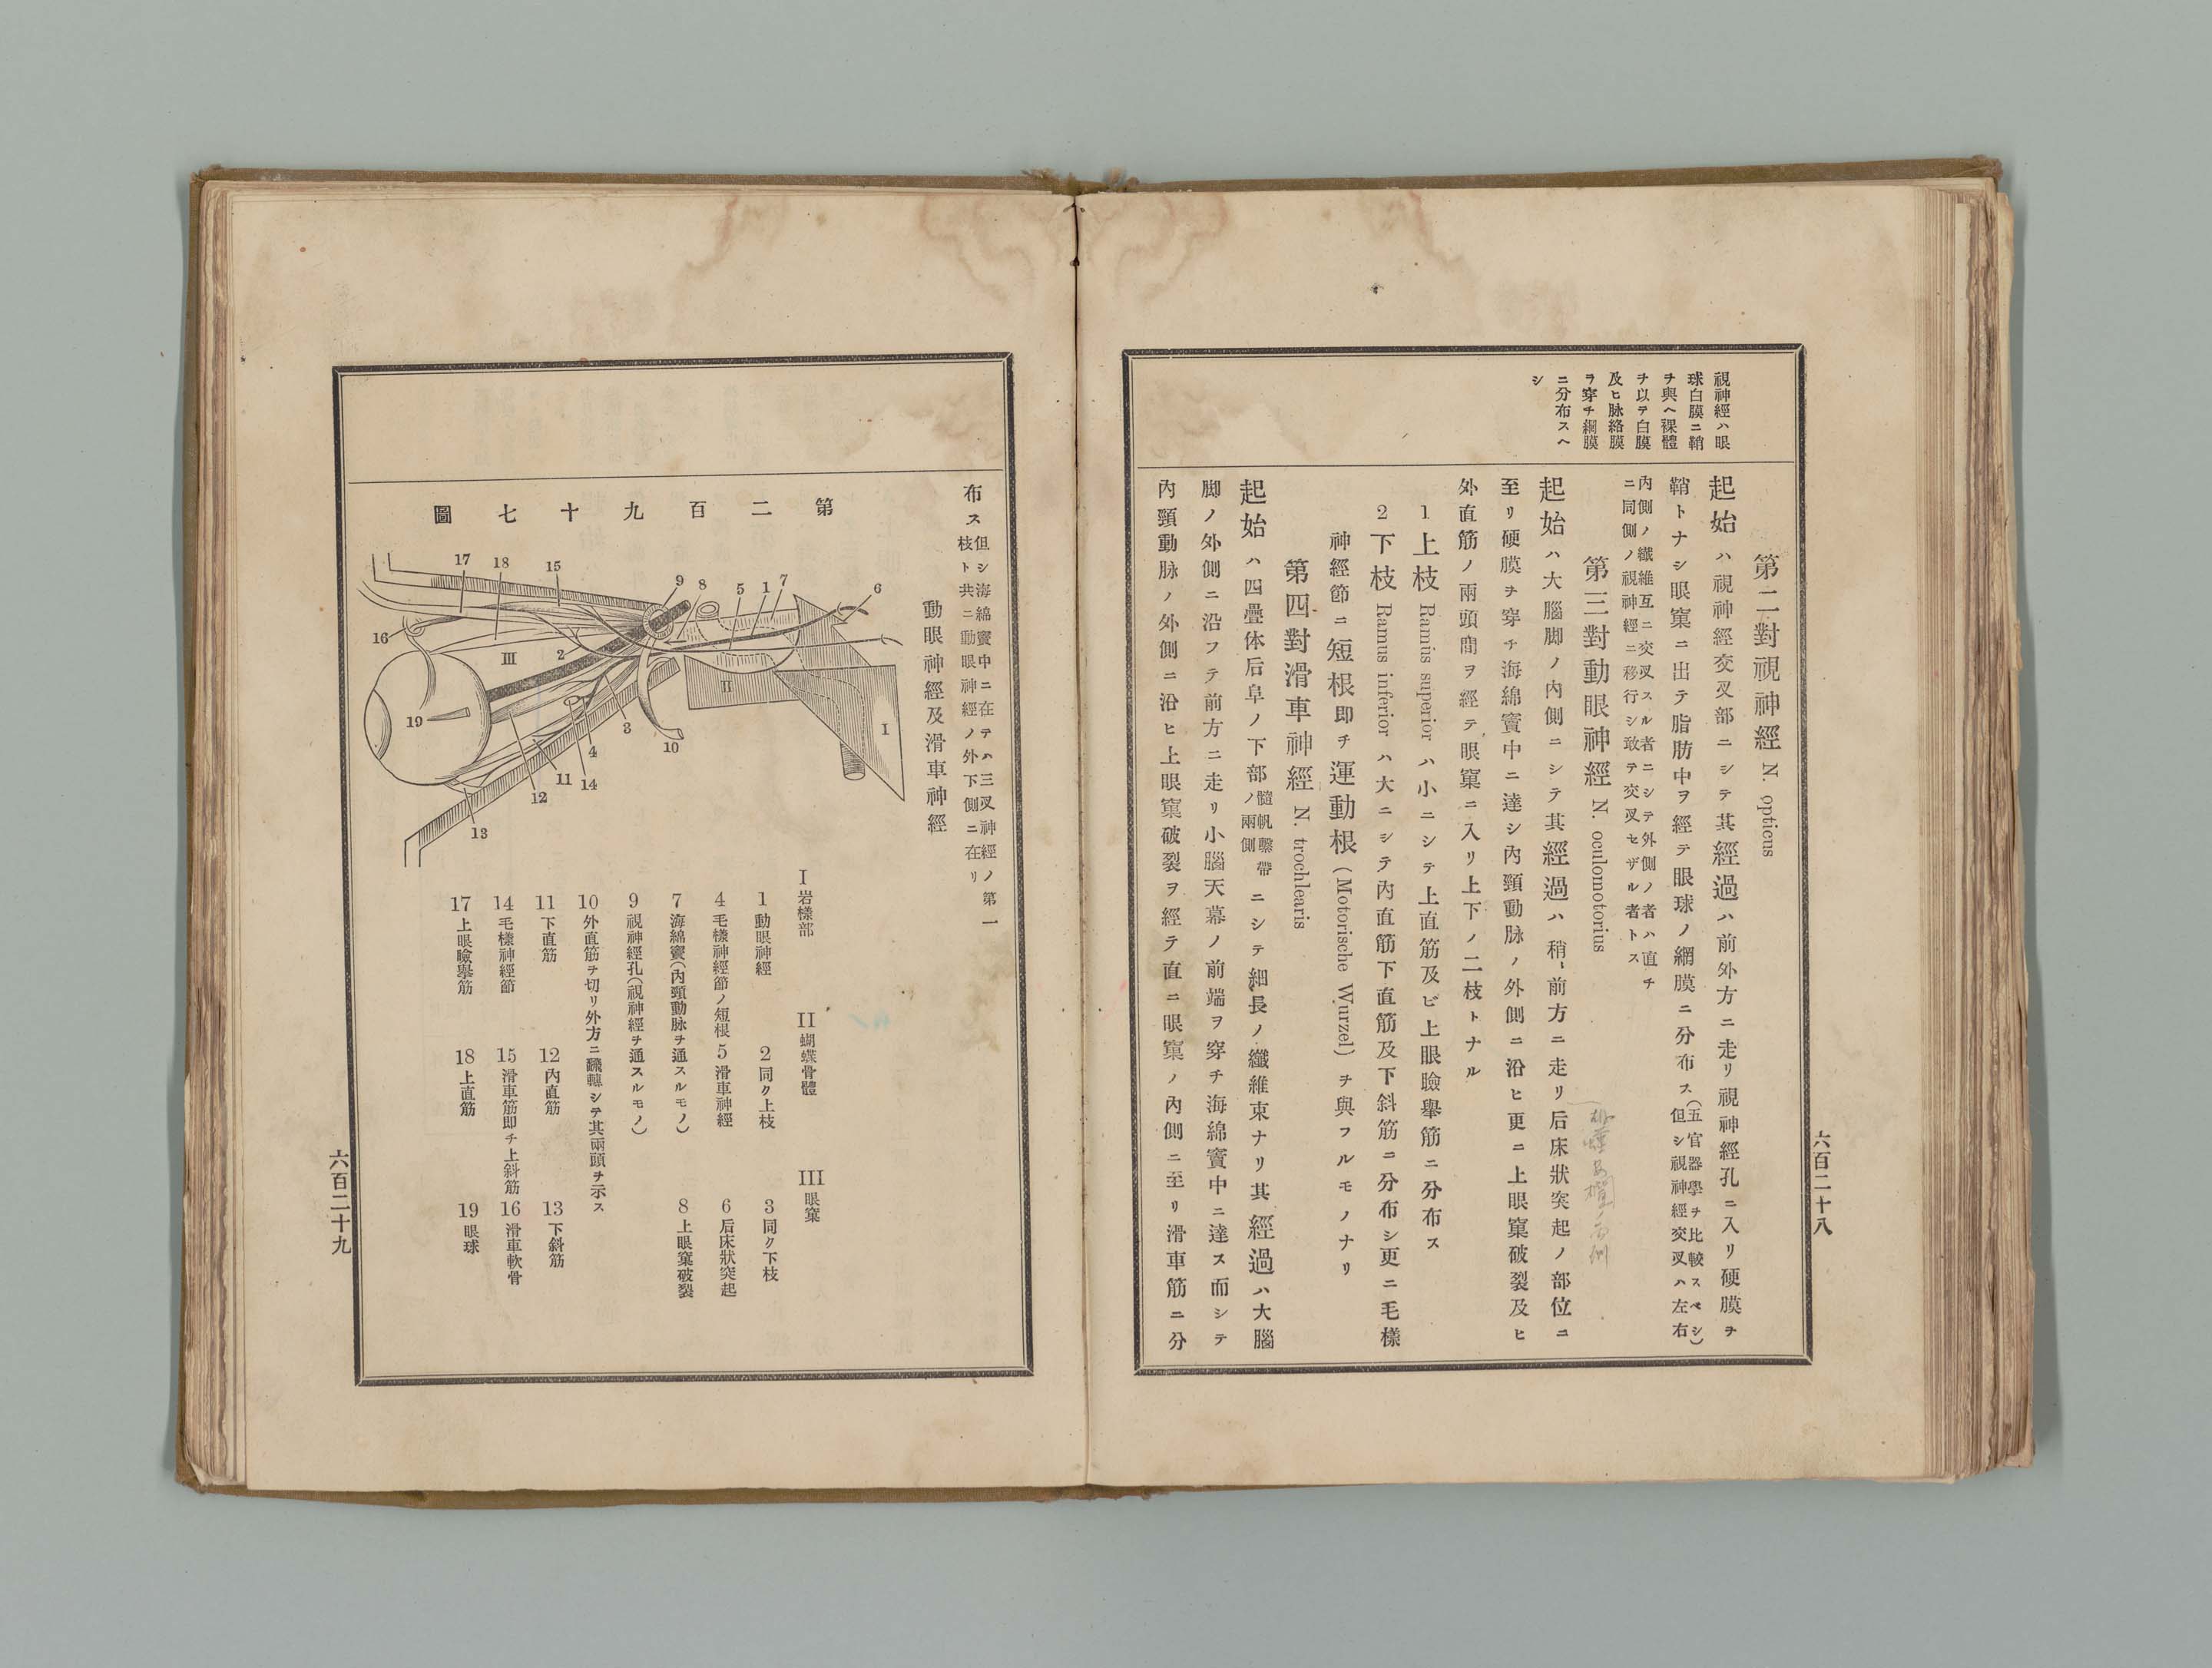 視神經ハ眼
球白膜ニ鞘
ヲ與ヘ裸體
ヲ以テ白膜
及ヒ脉絡膜
ヲ穿チ網膜
ニ分布スヘ
シ
第二對視神經 N. opticus
起始ハ視神經交叉部ニシテ其經過ハ前外方ニ走リ視神經孔ニ入リ硬膜ヲ
鞘トナシ眼窠ニ出テ脂肪中ヲ經テ眼球ノ網膜ニ分布ス(五官器學ヲ比較スベシ)但シ視神經交叉ハ左右
內側ノ纖維互ニ交叉スル者ニシテ外側ノ者ハ直チ
ニ同側ノ視神經ニ移行シ敢テ交叉セザル者トス
第三對動眼神經 N. oculomotorius
起始ハ大腦脚ノ內側ニシテ其經過ハ稍前方ニ走リ后床狀突起ノ部位ニ
至リ硬膜ヲ穿チ海綿竇中ニ達シ內頸動脉ノ外側ニ沿ヒ更ニ上眼窠破裂及ヒ
外直筋ノ兩頭間ヲ經テ眼窠ニ入リ上下ノ二枝トナル
1 上枝 Ramus superior ハ小ニシテ上直筋及ビ上眼瞼擧筋ニ分布ス
2 下枝 Ramus inferior ハ大ニシテ內直筋下直筋及下斜筋ニ分布シ更ニ毛樣
神經節ニ短根即チ運動根(Motorische Wurzel)ヲ與フルモノナリ
第四對滑車神經 N. trochlearis
起始ハ四疊体后阜ノ下部髓帆繫帶ノ兩側ニシテ細長ノ纖維束ナリ其經過ハ大腦
脚ノ外側ニ沿フテ前方ニ走リ小腦天幕ノ前端ヲ穿チ海綿竇中ニ達ス而シテ
內頸動脉ノ外側ニ沿ヒ上眼窠破裂ヲ經テ直ニ眼窠ノ內側ニ至リ滑車筋ニ分
六百二十八
布ス但シ海綿竇中ニ在テハ三叉神經ノ第一
枝ト共ニ動眼神經ノ外下側ニ在リ
動眼神經及滑車神經
第二百九十七圖
17
18
15
9
8
5
1
7
6
16
2
III
II
I
19
3
10
4
14
11
12
13
I 岩樣部
II 蝴蝶骨體
III 眼窠
1 動眼神經
2 同ク上枝
3 同ク下枝
4 毛樣神經節ノ短根
5 滑車神經
6 后床狀突起
7 海綿竇(內頸動脉ヲ通スルモノ)
8 上眼窠破裂
9 視神經孔(視神經ヲ通スルモノ)
10 外直筋ヲ切リ外方ニ飜轉シテ其兩頭ヲ示ス
11 下直筋
12 內直筋
13 下斜筋
14 毛樣神經節
15 滑車筋即チ上斜筋
16 滑車軟骨
17 上眼瞼擧筋
18 上直筋
19 眼球
六百二十九